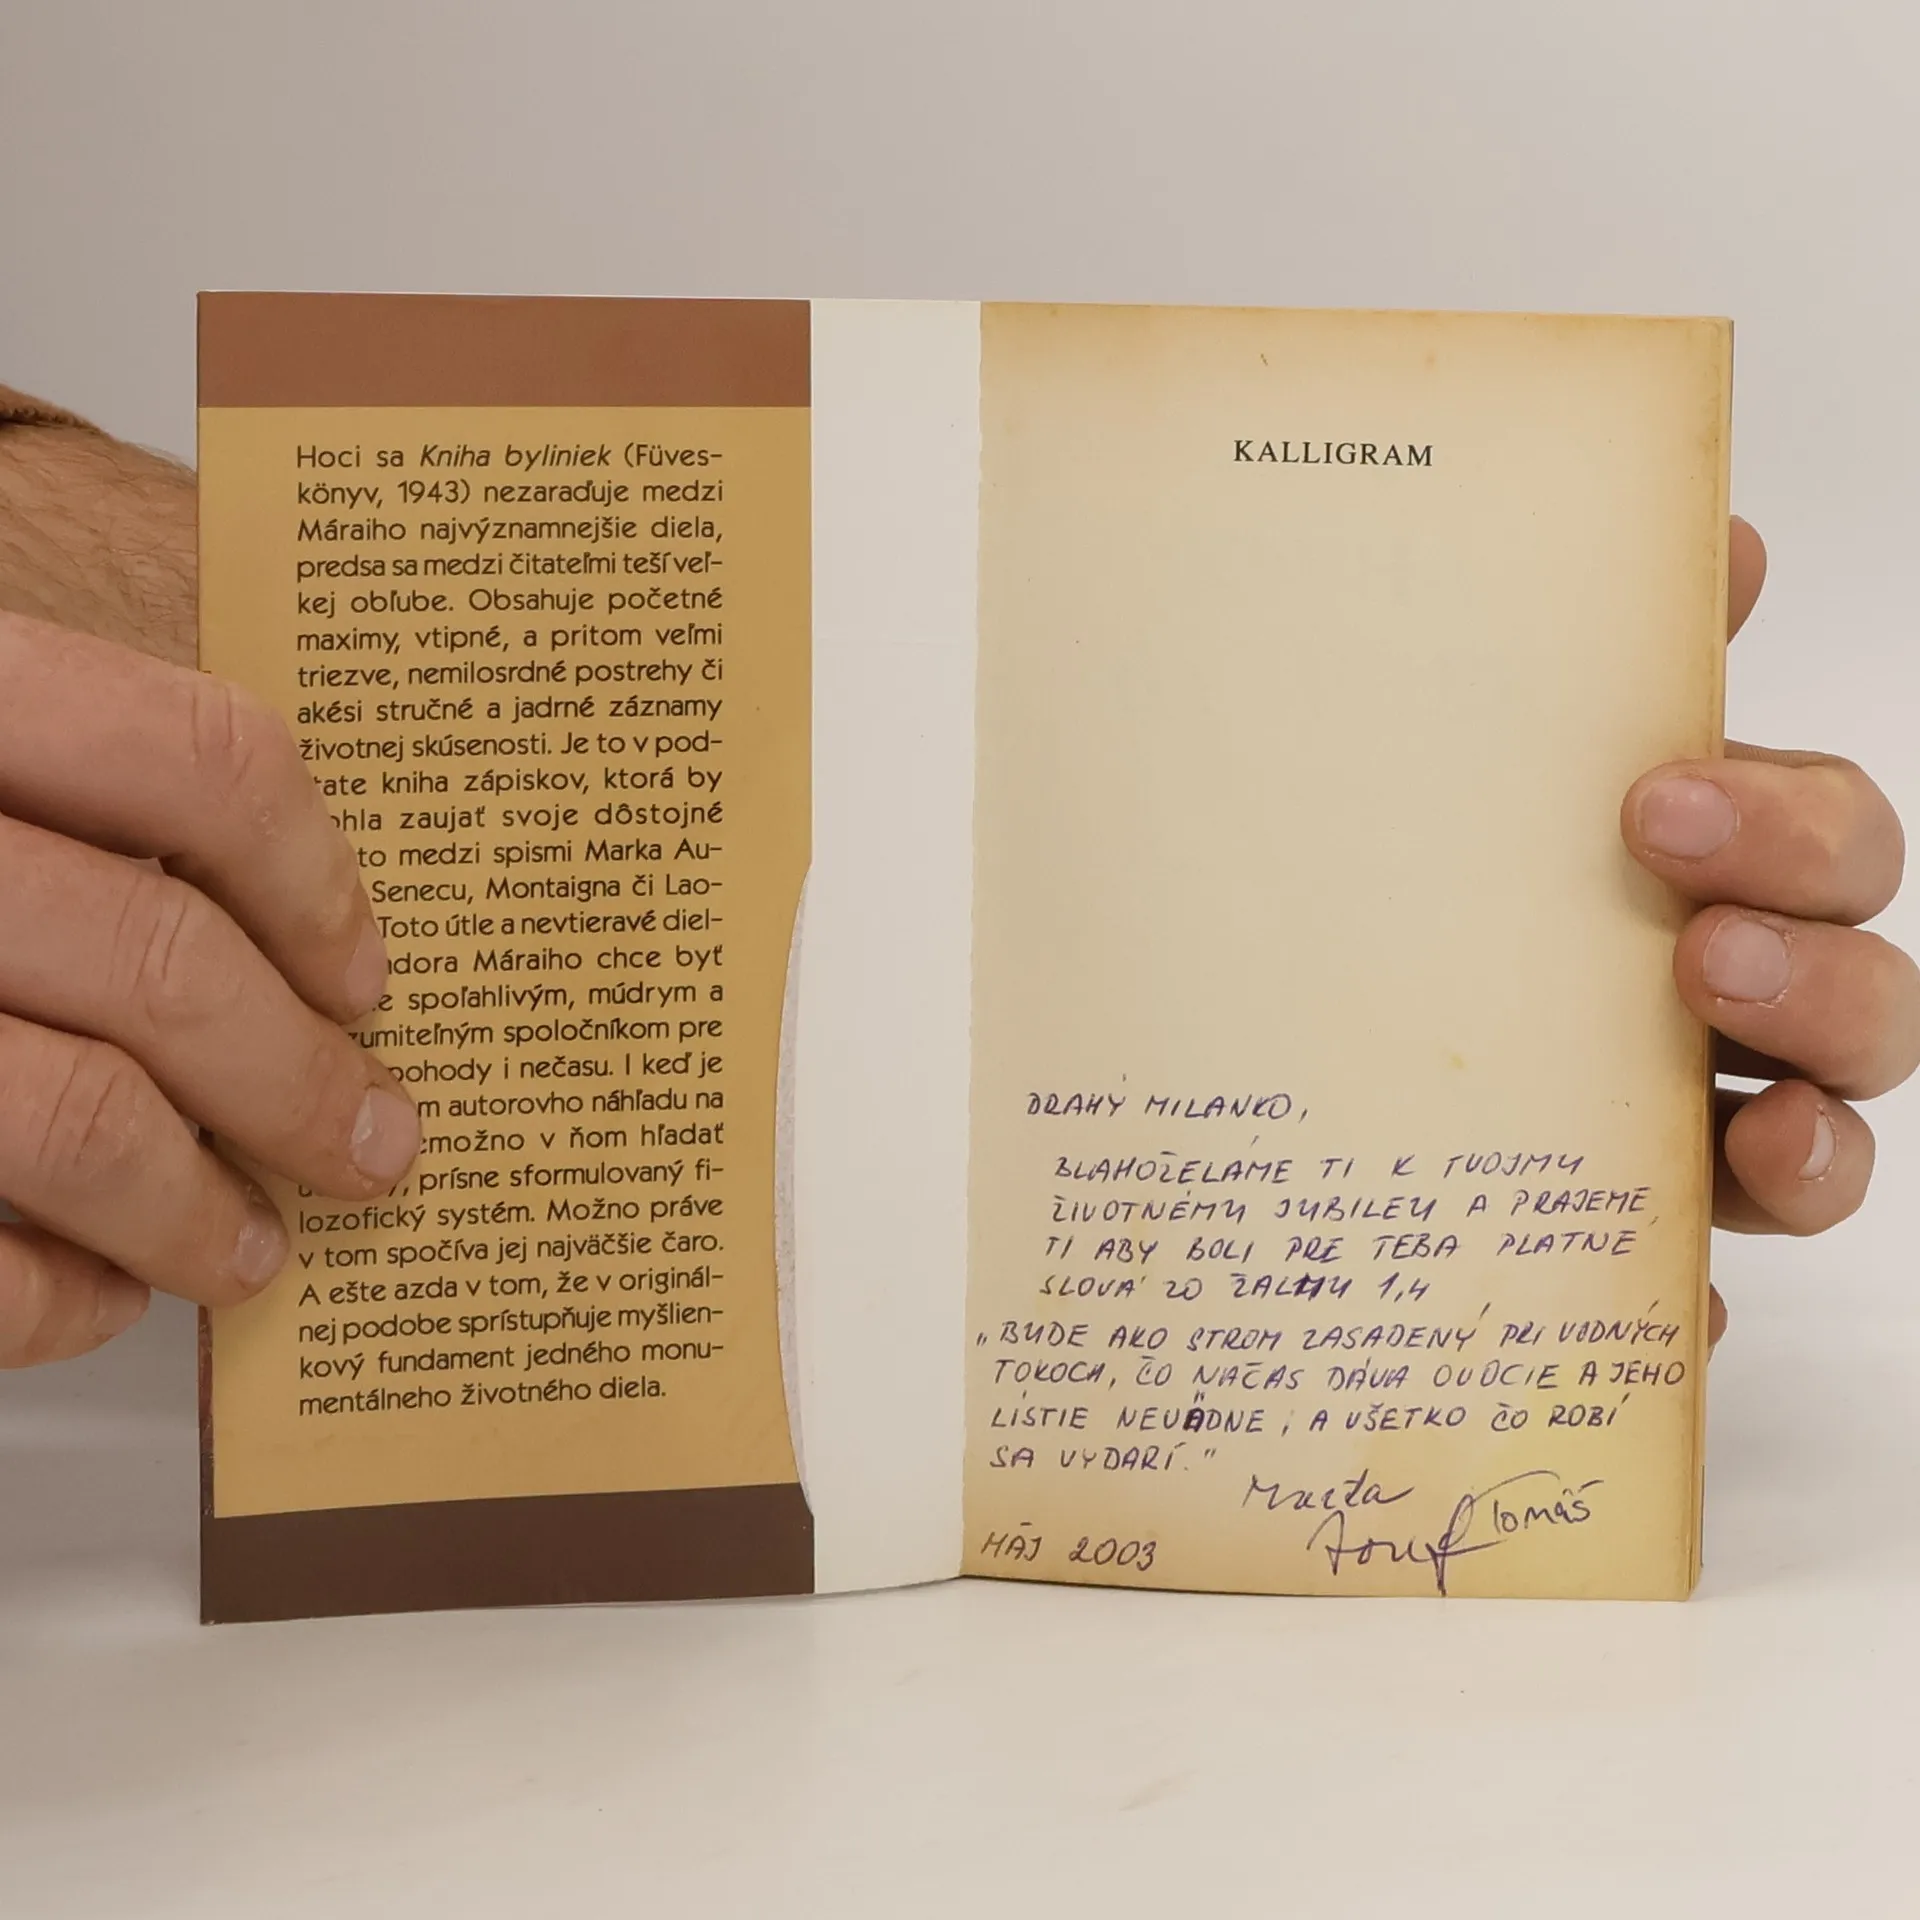 Hoci sa Kniha byliniek (Füves-
könyv, 1943) nezaraďuje medzi
Máraiho najvýznamnejšie diela,
predsa sa medzi čitateľmi teší veľ-
kej obľube. Obsahuje početné
maximy, vtipné, a pritom veľmi
triezve, nemilosrdné postrehy či
akési stručné a jadrné záznamy
životnej skúsenosti. Je to v pod-
tate kniha zápiskov, ktorá by
ohla zaujať svoje dôstojné
to medzi spismi Marka Au-
Senecu, Montaigna či Lao-
Toto útle a nevtieravé diel-
ndora Máraiho chce byť
e spoľahlivým, múdrym a
zumiteľným spoločníkom pre
pohody i nečasu. I keď je
m autorovho náhľadu na
emožno v ňom hľadať
, prísne sformulovaný fi-
lozofický systém. Možno práve
v tom spočíva jej najväčšie čaro.
A ešte azda v tom, že v originál-
nej podobe sprístupňuje myšlien-
kový fundament jedného monu-
mentálneho životného diela.
KALLIGRAM
DRAHÝ MILANKO,
BLAHOŽELÁME TI K TVOJMU
ŽIVOTNÉMU JUBILEU A PRAJEME
TI ABY BOLI PRE TEBA PLATNÉ
SLOVÁ ZO ŽALMU 1,4
„BUDE AKO STROM ZASADENÝ PRI VODNÝCH
TOKOCH, ČO NAČAS DÁVA OVOCIE A JEHO
LÍSTIE NEVÄDNE, A VŠETKO ČO ROBÍ
SA VYDARÍ."
Marta
Jozef Tomáš
MÁJ 2003